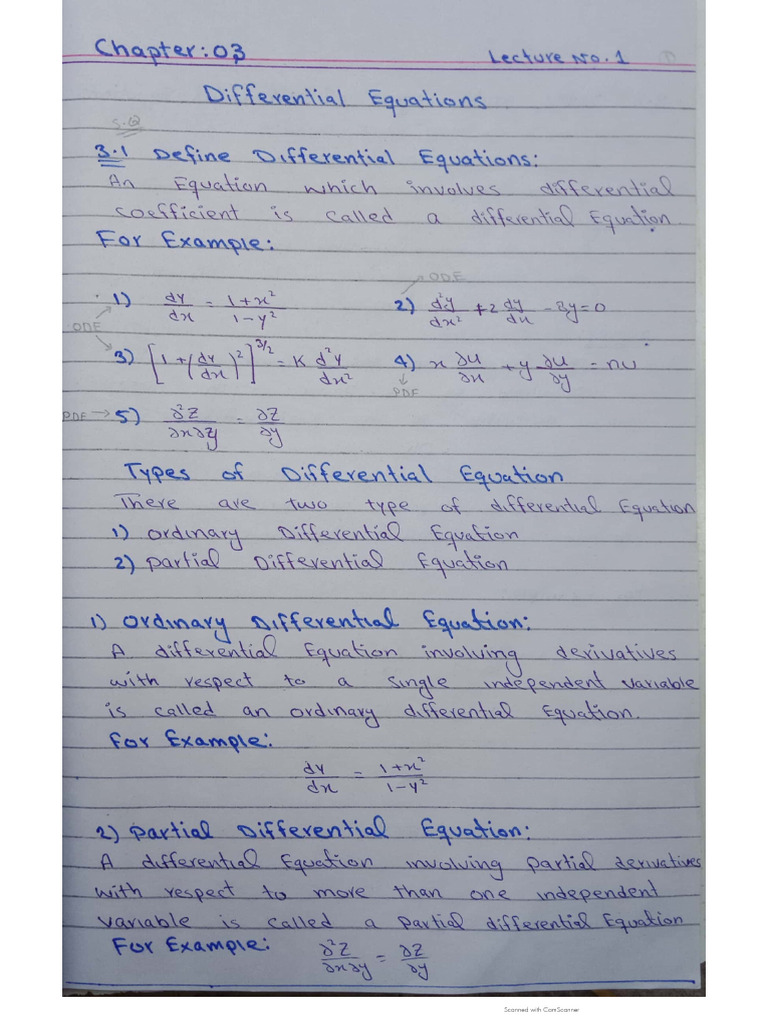 Chapter: 03 Lecture No. 1
Differential Equations
S.Q
3.1 Define Differential Equations:
An Equation which involves differential
coefficient is called a differential Equation.
For Example:
ODE
1) dy/dx = 1+x²/1-y² 2) d²y/dx² + 2 dy/dx - 3y = 0
ODE
3) [1+(dy/dx)²]^3/2 = K d²y/dx² 4) x ∂u/∂x + y ∂u/∂y = nu
PDE
PDE → 5) ∂²Z/∂x∂y = ∂Z/∂y
Types of Differential Equation
There are two type of differential Equation
1) ordinary Differential Equation
2) Partial Differential Equation
1) Ordinary Differential Equation:
A differential Equation involving derivatives
with respect to a single independent variable
is called an ordinary differential Equation.
For Example:
dy/dx = 1+x²/1-y²
2) Partial Differential Equation:
A differential Equation involving partial derivatives
with respect to more than one independent
variable is called a partial differential Equation
For Example: ∂²Z/∂x∂y = ∂Z/∂y
Scanned with CamScanner